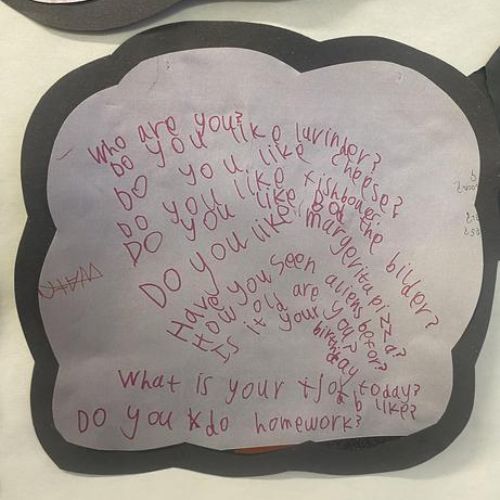 Who are you?
Do you like lavinder?
Do you like cheese?
Do you like fishbones?
Do you like Bob the bilder?
Do you like margeritapizza?
Have you seen aliens befor?
How old are you?
Is it your birthday
today?
What is your like?
Do you do homework?